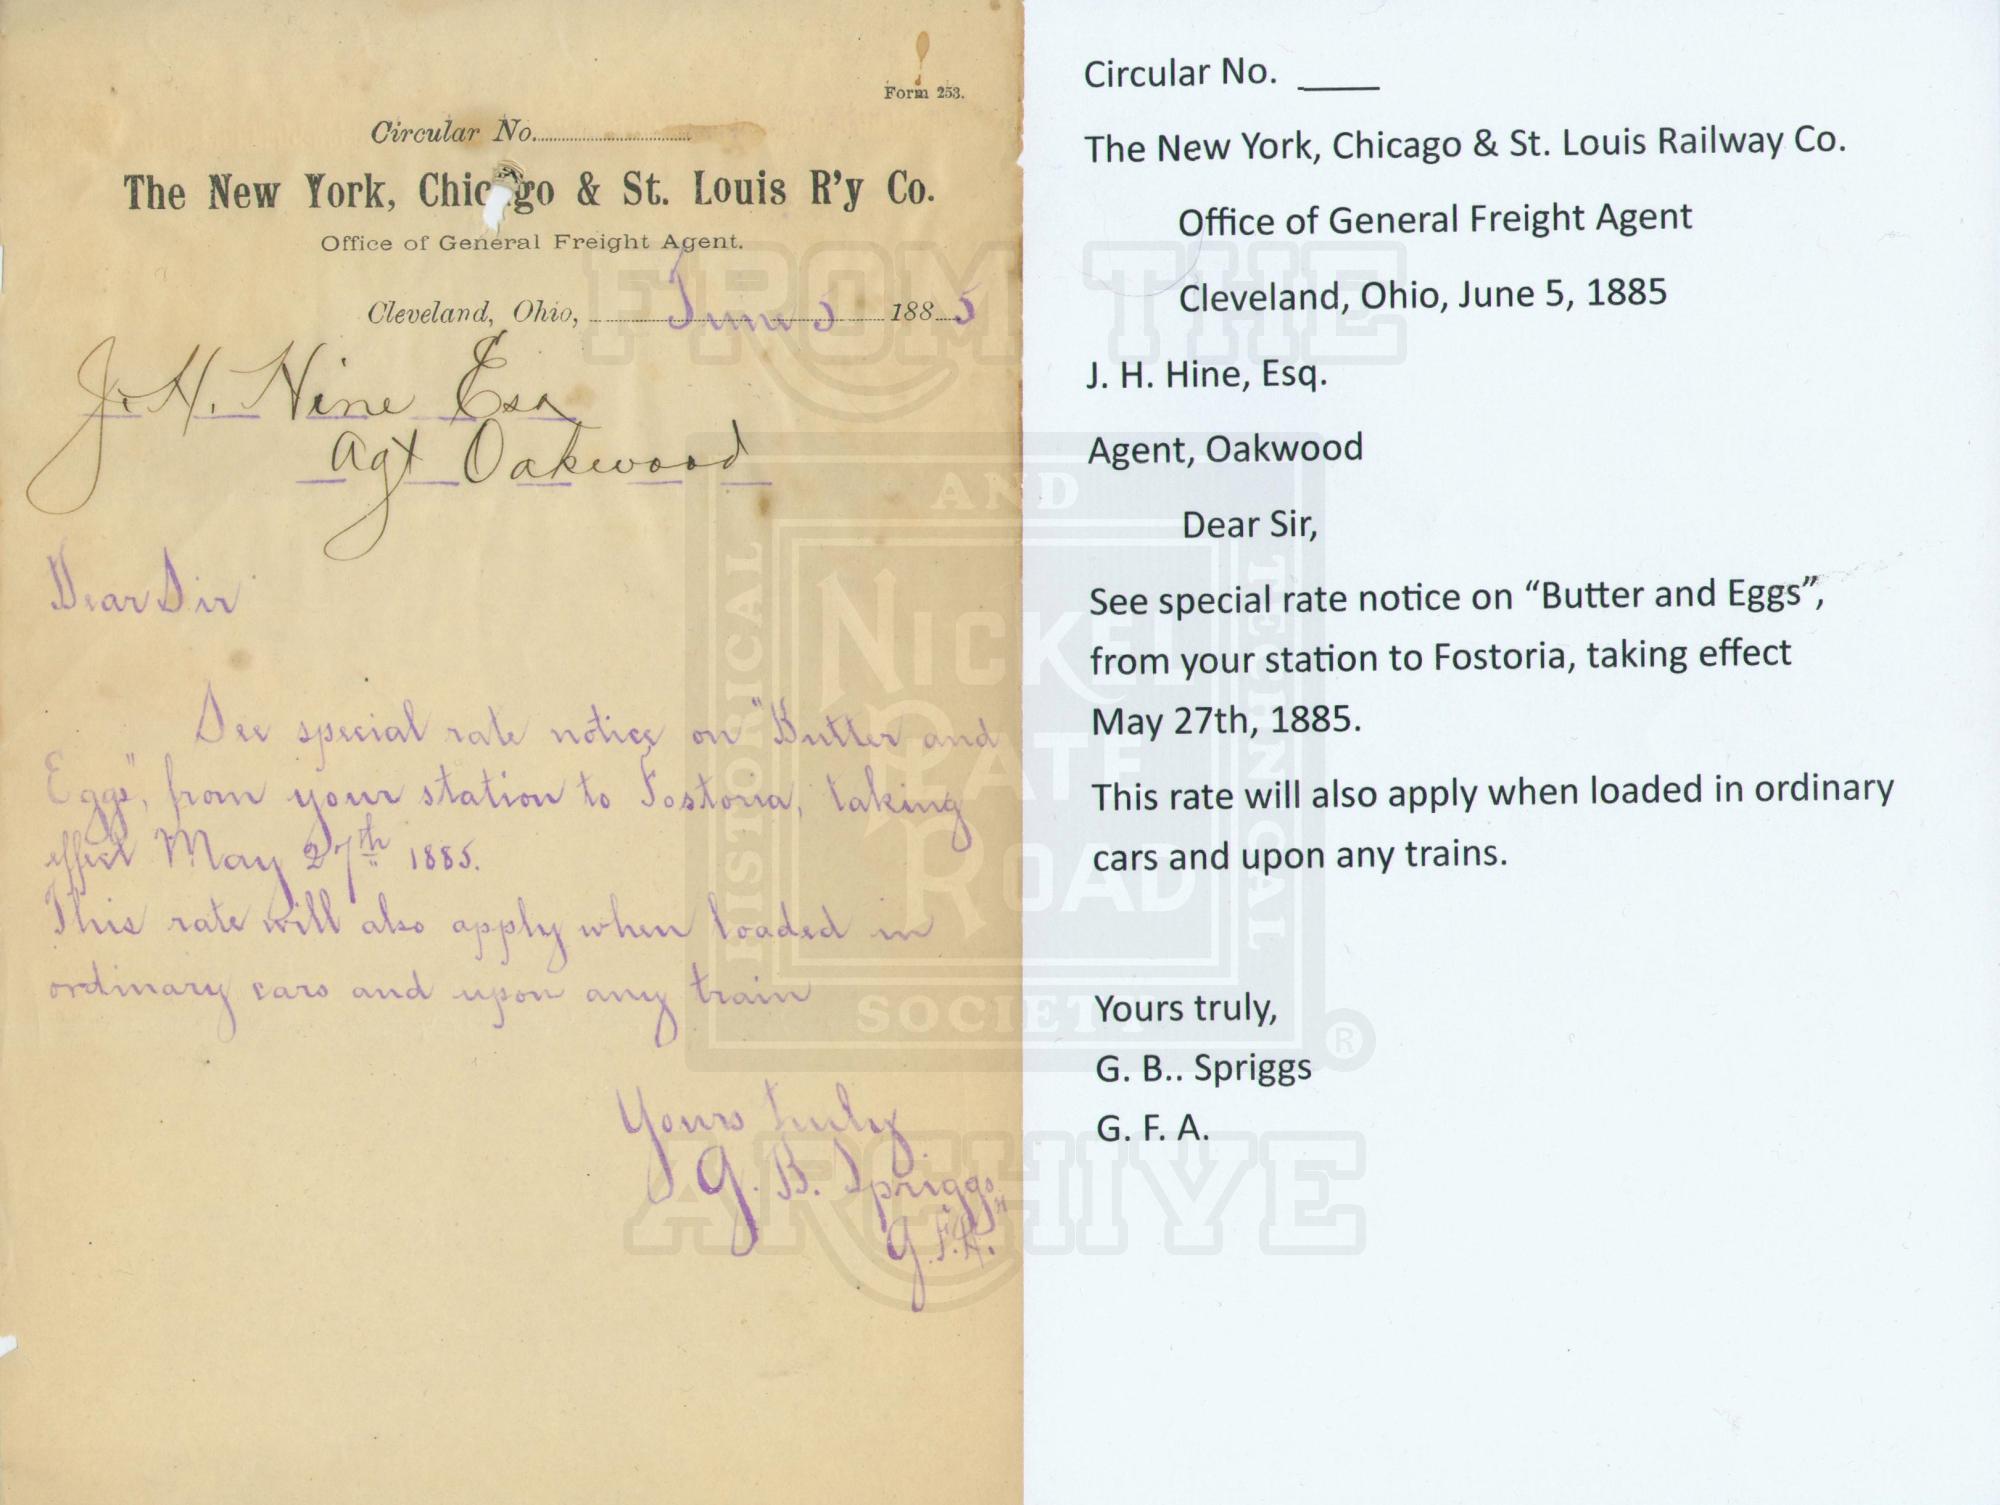 Form 253.
Circular No.
The New York, Chicago & St. Louis R'y Co.
Office of General Freight Agent.
Cleveland, Ohio, June 5 1885
J. H. Hine Esq
Agt Oakwood
Dear Sir
See special rate notice on "Butter and
Eggs", from your station to Fostoria, taking
effect May 27th 1885.
This rate will also apply when loaded in
ordinary cars and upon any train
Yours truly
G. B. Spriggs
G.F.A.
Circular No. ____
The New York, Chicago & St. Louis Railway Co.
Office of General Freight Agent
Cleveland, Ohio, June 5, 1885
J. H. Hine, Esq.
Agent, Oakwood
Dear Sir,
See special rate notice on “Butter and Eggs”,
from your station to Fostoria, taking effect
May 27th, 1885.
This rate will also apply when loaded in ordinary
cars and upon any trains.
Yours truly,
G. B.. Spriggs
G. F. A.
FROM THE
AND
HISTORICAL
TECHNICAL
NICKEL
PLATE
ROAD
SOCIETY
®
ARCHIVE